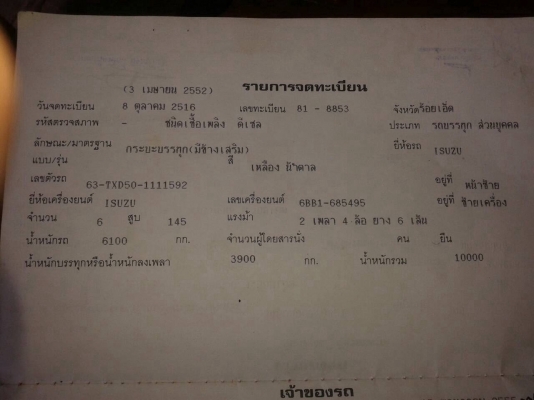 (3 เมษายน 2552) รายการจดทะเบียน
วันจดทะเบียน 8 ตุลาคม 2516 เลขทะเบียน 81 - 8853 จังหวัดร้อยเอ็ด
รหัสตรวจสภาพ - ชนิดเชื้อเพลิง ดีเซล ประเภท รถบรรทุก ส่วนบุคคล
ลักษณะ/มาตรฐาน กระบะบรรทุก(มีข้างเสริม) ยี่ห้อรถ ISUZU
แบบ/รุ่น สี เหลือง ฟ้า
เลขตัวรถ 63-TXD50-1111592 อยู่ที่ หน้าซ้าย
ยี่ห้อเครื่องยนต์ ISUZU เลขเครื่องยนต์ 6BB1-685495 อยู่ที่ ซ้ายเครื่อง
จำนวน 6 สูบ 145 แรงม้า 2 เพลา 4 ล้อ ยาง 6 เส้น
น้ำหนักรถ 6100 กก. จำนวนผู้โดยสารนั่ง คน ยืน
น้ำหนักบรรทุกหรือน้ำหนักลงเพลา 3900 กก. น้ำหนักรวม 10000
เจ้าของรถ